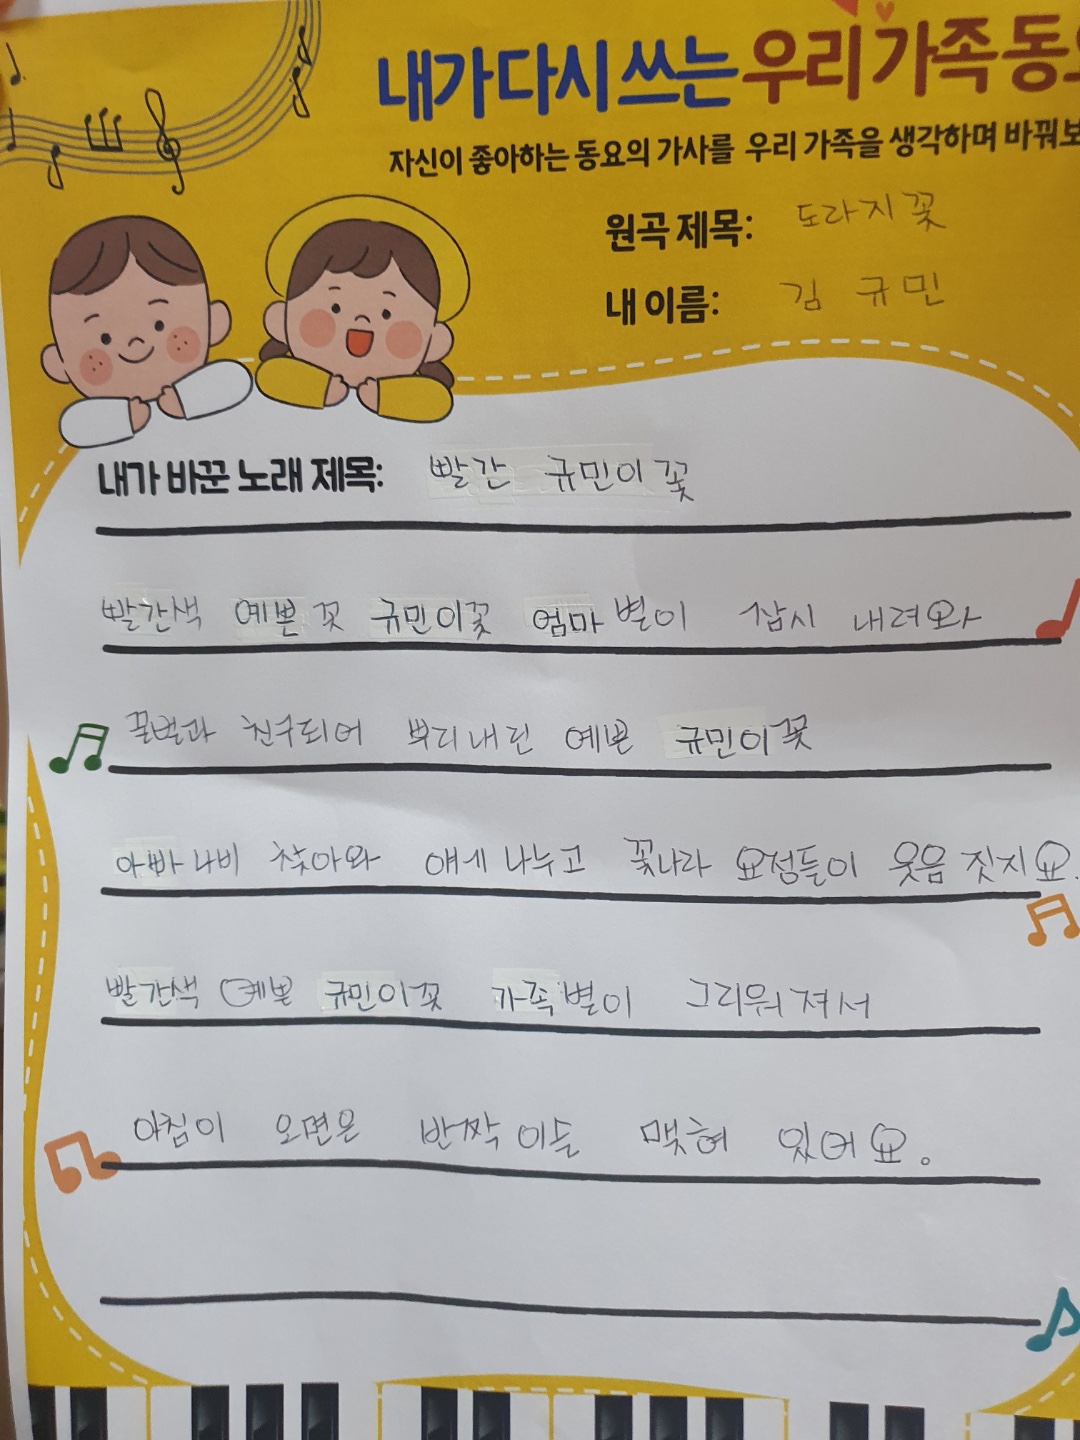 내가 다시 쓰는 우리 가족 동
자신이 좋아하는 동요의 가사를 우리 가족을 생각하며 바꿔보
원곡 제목: 도라지꽃
내 이름: 김 규민
내가 바꾼 노래 제목: 빨간 규민이꽃
빨간색 예쁜 꼿 규민이꽃 엄마 별이 잠시 내려와
꿀벌과 친구되어 뿌리내린 예쁜 규민이꽃
아빠 나비 찾아와 얘세 나누고 꽃나라 요정들이 웃음 짓지요.
빨간색 예쁜 규민이꽃 가족 별이 그리워져서
아침이 오면은 반짝 이슬 맺혀 있어요.